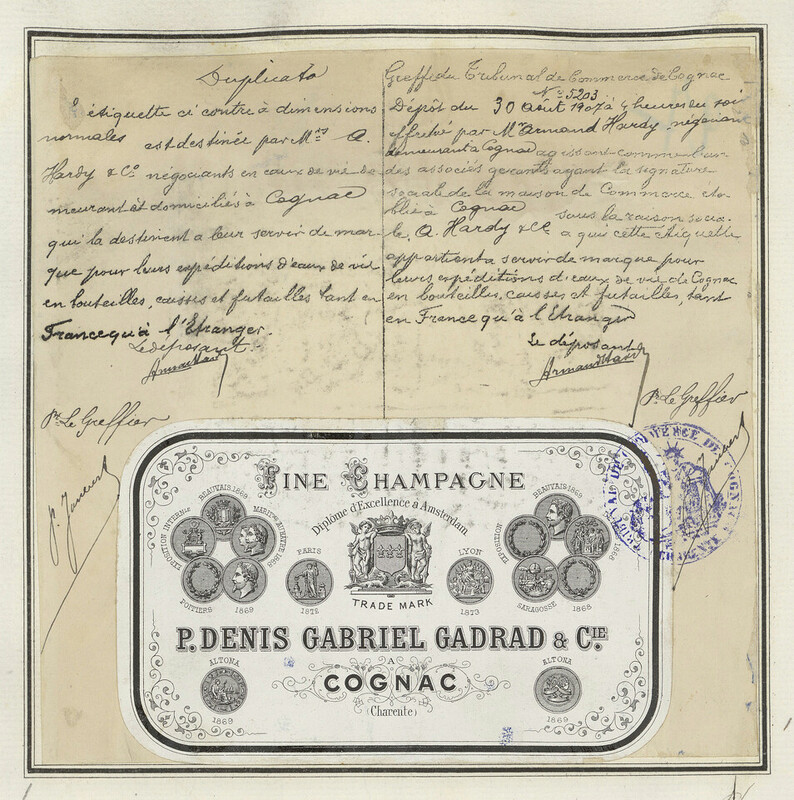 Duplicata
L'étiquette ci contre à dimensions
normales est destinée par Mrs A.
Hardy & Co négociants en eaux de vie de
meurant et domiciliés à Cognac
qui la destinent a leur servir de mar-
que pour leurs expéditions d'eaux de vie
en bouteilles, caisses et futailles tant en
France qu'à l'Etranger.
Le déposant.
Pr Le Greffier
Greffe du Tribunal de Commerce de Cognac
No 5203
Dépôt du 30 Août 1907 à 4 heures du soir
effectué par Mr Armand Hardy négociant
demeurant à Cognac agissant comme l'un
des associés gérants ayant la signature
sociale de la maison de Commerce éta-
blie à Cognac sous la raison socia-
le A. Hardy & Ce a qui cette étiquette
appartient a servir de marque pour
leurs expéditions d'eaux de vie de Cognac
en bouteilles, caisses et futailles, tant
en France qu'à l'Etranger
Le déposant
Armand Hardy
Pr Le Greffier
FINE CHAMPAGNE
Diplôme d'Excellence à Amsterdam
BEAUVAIS 1869
EXPOSITION INTERNle
MARITme HAVRE 1868
POITIERS 1869
PARIS
1872
TRADE MARK
LYON
1873
BEAUVAIS 1869
EXPOSITION
1868
SARAGOSSE 1868
P. DENIS GABRIEL GADRAD & CIE.
A
COGNAC
(Charente)
ALTONA
1869
ALTONA
1869